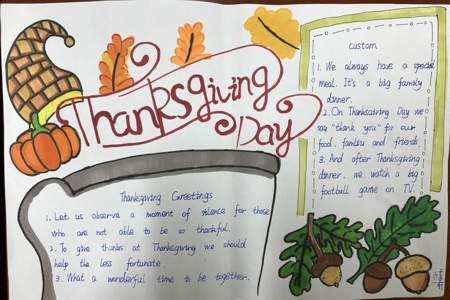 Thanksgiving
Day
Thanksgiving Greetings
1. Let us observe a moment of silence for those
who are not able to be so thankful.
2. To give thanks at Thanksgiving we should
help the less fortunate
3. What a wonderful time to be together.
custom
1. We always have a special
meal. It's a big family
dinner.
2. On Thanksgiving Day we
say "thank you" for our
food, families and friends
3. And after Thanksgiving
dinner. we watch a big
football game on TV.